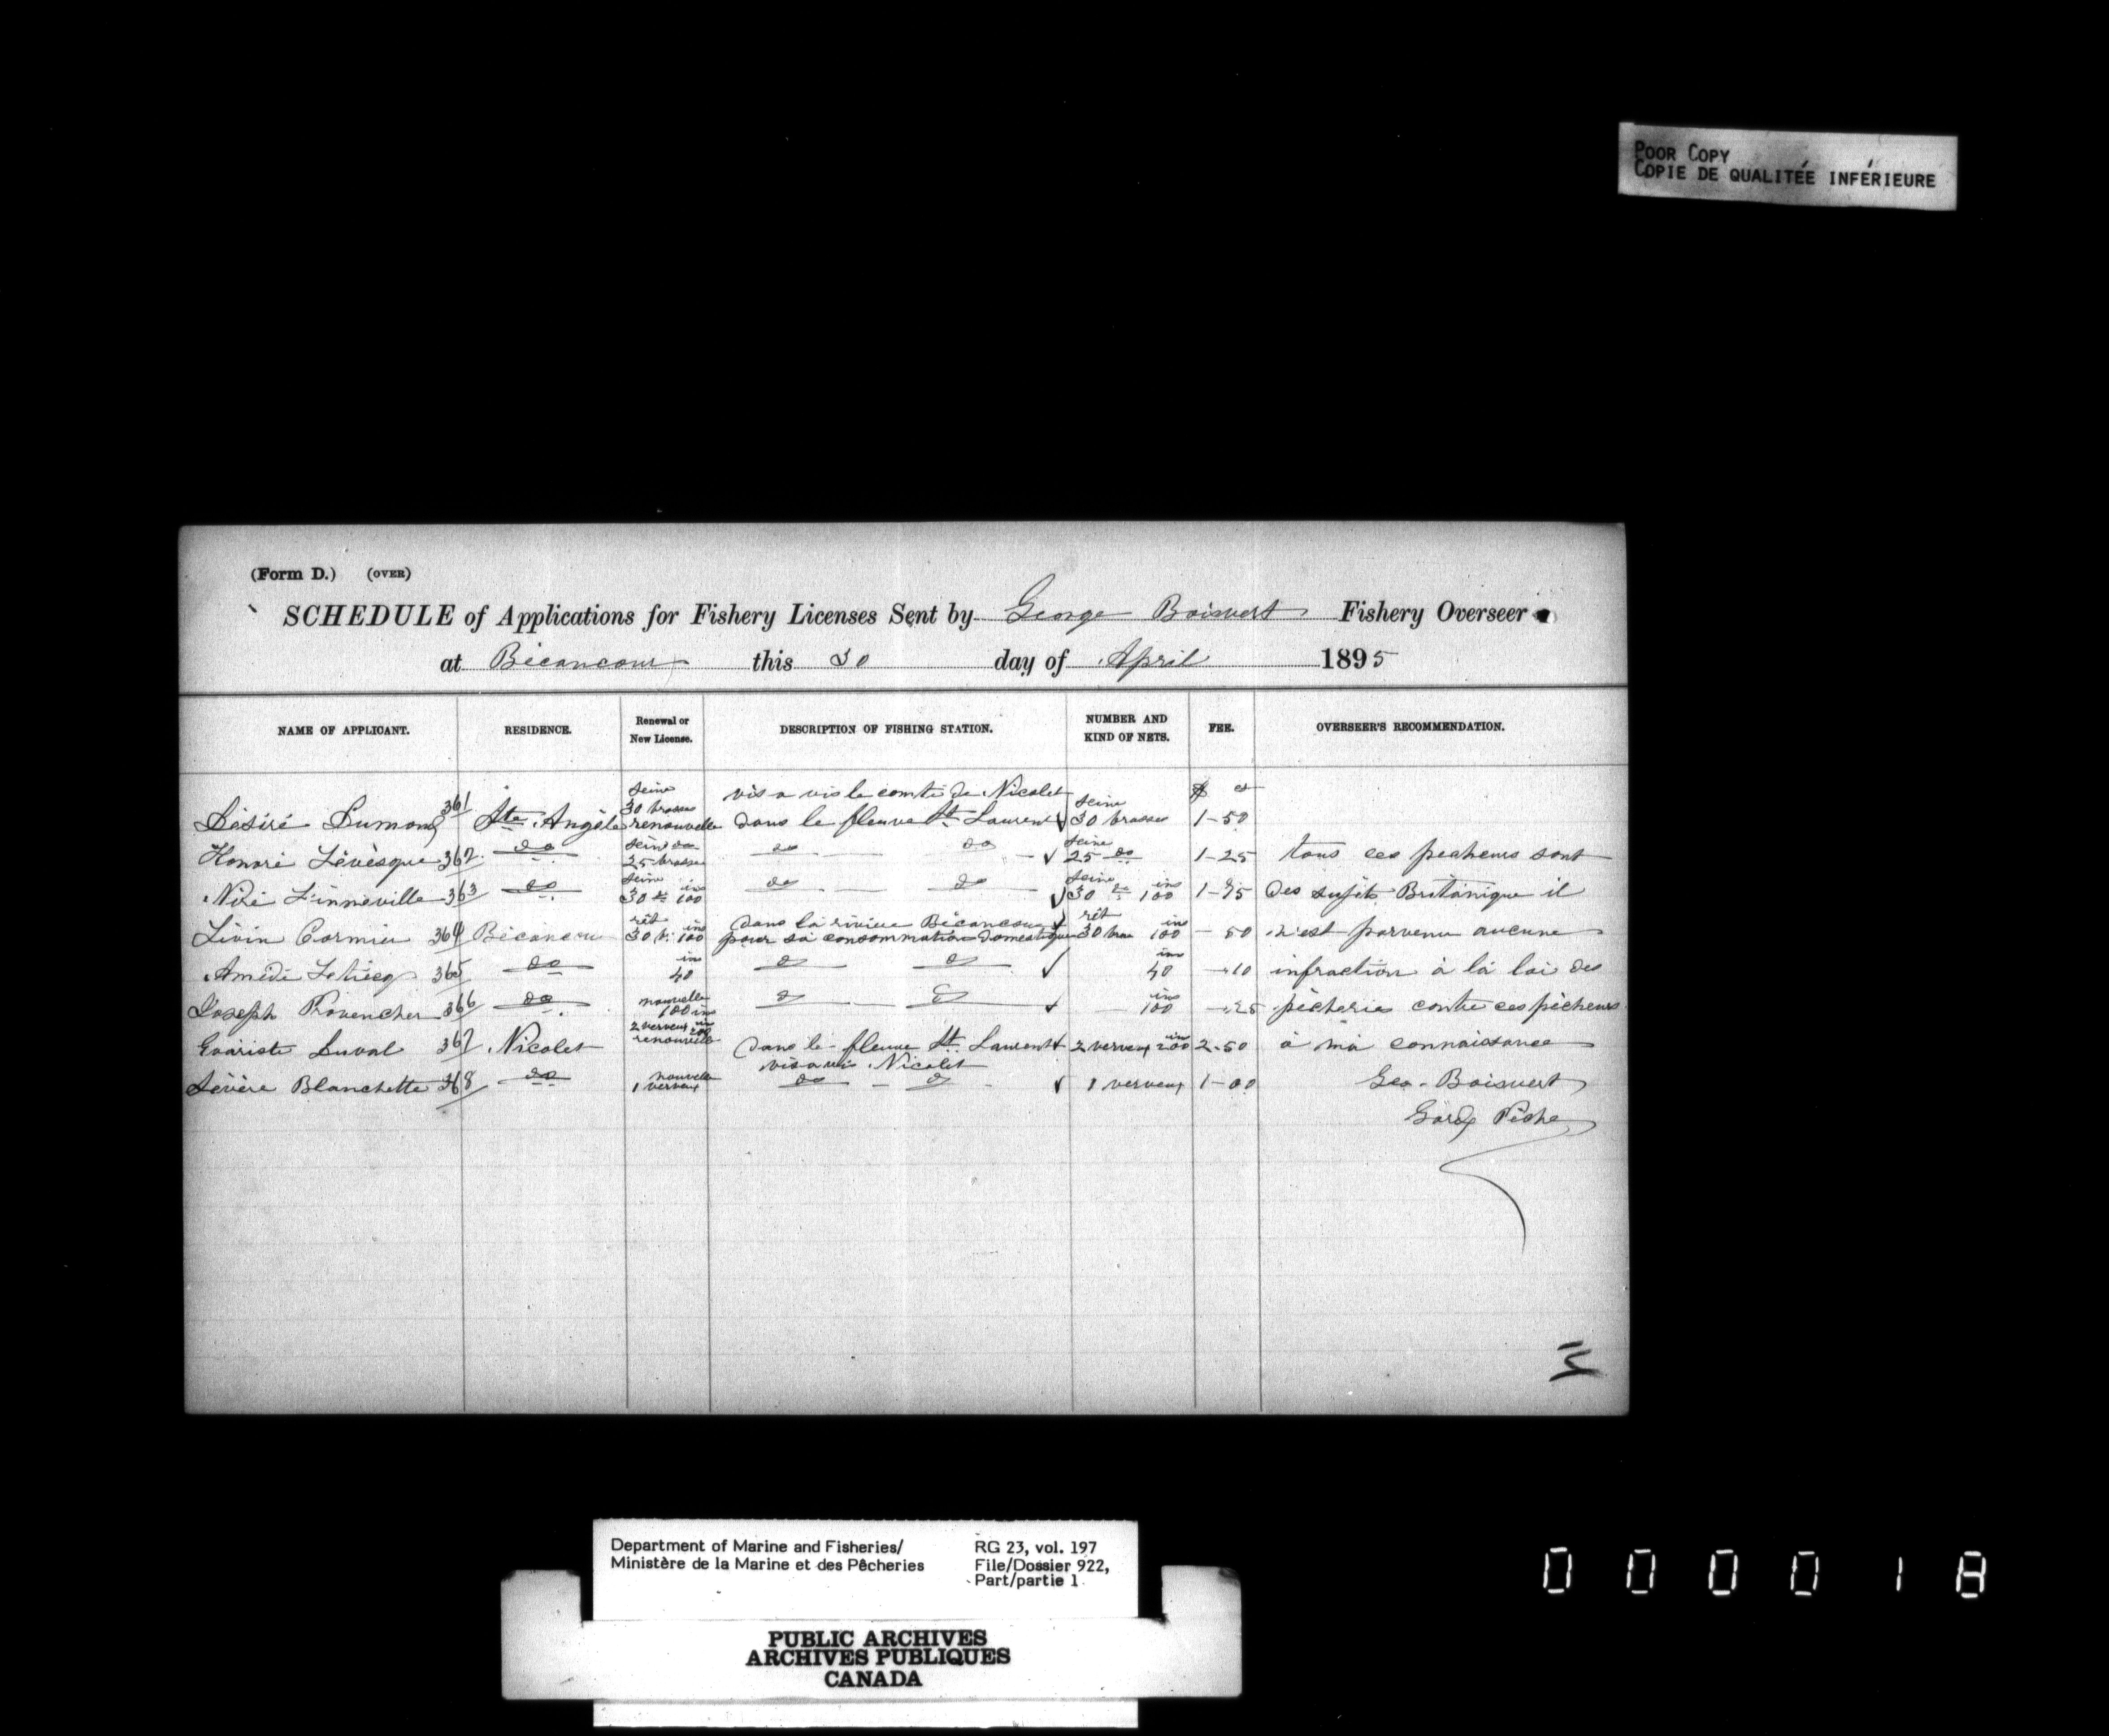 POOR COPY
COPIE DE QUALITÉE INFÉRIEURE
(Form D.) (OVER)
SCHEDULE of Applications for Fishery Licenses Sent by George Boisvert Fishery Overseer
at Bécancour this 30 day of April 1895
NAME OF APPLICANT. RESIDENCE. Renewal or New License. DESCRIPTION OF FISHING STATION. NUMBER AND KIND OF NETS. FEE. OVERSEER'S RECOMMENDATION.
Désiré Dumond 361 Ste Angèle seine 30 brasses renouvelle vis a vis le comté de Nicolet dans le fleuve St Laurent √ seine 30 brasses $ ct 1-50
Honoré Lévèsque 362 do seine do 25 brasse do do √ seine 25 do 1-25 tous ces pecheurs sont
Noré Linneville 363 do seine 30 do ins 100 do do √ seine 30 do ins 100 1-75 des sujets Britanique il
Livin Cormier 364 Bécancour rêt 30 b. ins 100 dans la rivière Bécancour pour sa consommation domestique √ rêt 30 bra ins 100 - 50 n'est parvenu aucune
Amédé 365 do ins 40 do do √ ins 40 -10 infraction à la loi des
Joseph Provencher 366 do nouvelle 100 ins do do √ ins 100 -25 pêcheries contre ces pêcheurs
Evariste Duval 367 Nicolet 2 verveux ins 200 renouvelle Dans le fleuve St Laurent vis a vis Nicolet √ 2 verveux ins 200 2-50 à ma connaissance
Sévère Blanchette 368 do nouvelle 1 verveux do do √ 1 verveux 1-00 Geo. Boisvert
Garde Pêche
Department of Marine and Fisheries/ RG 23, vol. 197
Ministère de la Marine et des Pêcheries File/Dossier 922,
Part/partie 1
PUBLIC ARCHIVES
ARCHIVES PUBLIQUES
CANADA
000018